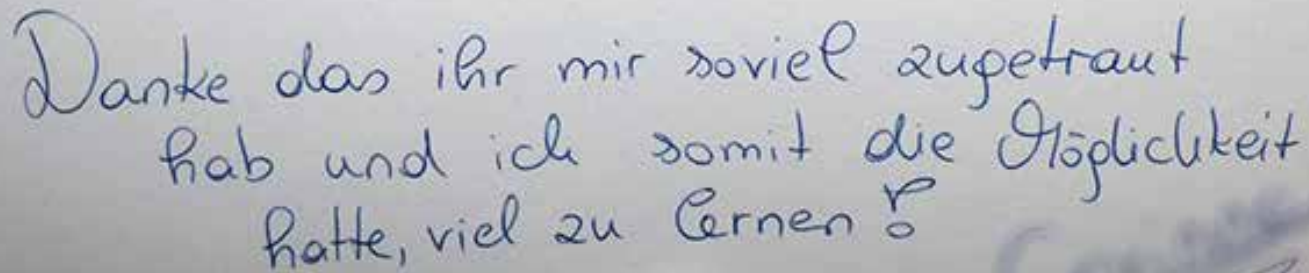 Danke das ihr mir soviel zugetraut
hab und ich somit die Möglichkeit
hatte, viel zu lernen!